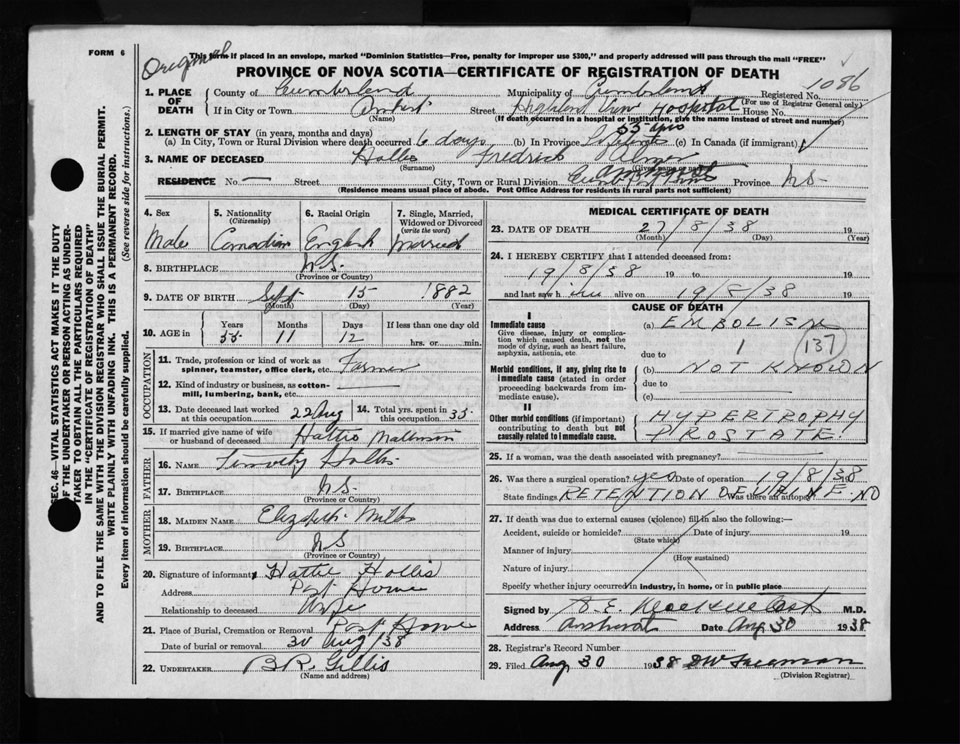 FORM 6
Original
This form if placed in an envelope, marked "Dominion Statistics—Free, penalty for improper use $300," and properly addressed will pass through the mail "FREE"
PROVINCE OF NOVA SCOTIA—CERTIFICATE OF REGISTRATION OF DEATH
1086
1. PLACE OF DEATH County of Cumberland Municipality of Cumberland Registered No. (For use of Registrar General only)
If in City or Town Amherst (Name) Street Highland View Hospital House No.
(If death occurred in a hospital or institution, give the name instead of street and number)
2. LENGTH OF STAY (in years, months and days)
(a) In City, Town or Rural Division where death occurred 6 days (b) In Province 55 yrs (c) In Canada (if immigrant)
3. NAME OF DECEASED Hollis Fredrick
(Surname) (Given name or names)
RESIDENCE No. — Street City, Town or Rural Division Province N.S.
(Residence means usual place of abode. Post Office Address for residents in rural parts not sufficient)
4. Sex Male
5. Nationality (Citizenship) Canadian
6. Racial Origin English
7. Single, Married, Widowed or Divorced (write the word) Married
8. BIRTHPLACE N.S.
(Province or Country)
9. DATE OF BIRTH Sept 15 1882
(Month) (Day) (Year)
10. AGE in Years 55 Months 11 Days 12 If less than one day old hrs. or min.
OCCUPATION
11. Trade, profession or kind of work as spinner, teamster, office clerk, etc. Farmer
12. Kind of industry or business, as cotton-mill, lumbering, bank, etc.
13. Date deceased last worked at this occupation 22 Aug 14. Total yrs. spent in this occupation 35
15. If married give name of wife or husband of deceased
FATHER
16. NAME Timothy Hollis
17. BIRTHPLACE N.S.
(Province or Country)
MOTHER
18. MAIDEN NAME Elizabeth Mills
19. BIRTHPLACE N.S
(Province or Country)
20. Signature of informant Hattie Hollis
Address Port Howe
Relationship to deceased Wife
21. Place of Burial, Cremation or Removal Port Howe
Date of burial or removal 30 Aug 38
22. UNDERTAKER B.R. Gillis
(Name and address)
MEDICAL CERTIFICATE OF DEATH
23. DATE OF DEATH 27/8/38
(Month) (Day) (Year)
24. I HEREBY CERTIFY that I attended deceased from:
19/8/38 19 to 19
and last saw h im alive on 19/8/38 19
CAUSE OF DEATH
I
Immediate cause
Give disease, injury or complication which caused death, not the mode of dying, such as heart failure, asphyxia, asthenia, etc
(a) EMBOLISM
due to 137
Morbid conditions, if any, giving rise to immediate cause (stated in order proceeding backwards from immediate cause).
(b) NOT KNOWN
due to
(c)
II
Other morbid conditions (if important) contributing to death but not causally related to immediate cause.
HYPERTROPHY
PROSTATE
25. If a woman, was the death associated with pregnancy?
26. Was there a surgical operation? yes Date of operation 19/8/38
State findings RETENTION OF URINE Was there an autopsy? NO
27. If death was due to external causes (violence) fill in also the following:—
Accident, suicide or homicide? Date of injury 19
(State which)
Manner of injury
(How sustained)
Nature of injury
Specify whether injury occurred in industry, in home, or in public place
Signed by M.D.
Address Amherst Date Aug 30 1938
28. Registrar's Record Number
29. Filed Aug 30 1938 Freeman
(Division Registrar)
SEC. 46—VITAL STATISTICS ACT MAKES IT THE DUTY
OF THE UNDERTAKER OR PERSON ACTING AS UNDER-
TAKER TO OBTAIN ALL THE PARTICULARS REQUIRED
IN THE "CERTIFICATE OF REGISTRATION OF DEATH"
AND TO FILE THE SAME WITH THE DIVISION REGISTRAR WHO SHALL ISSUE THE BURIAL PERMIT.
WRITE PLAINLY WITH UNFADING INK. THIS IS A PERMANENT RECORD.
Every item of information should be carefully supplied. (See reverse side for instructions.)